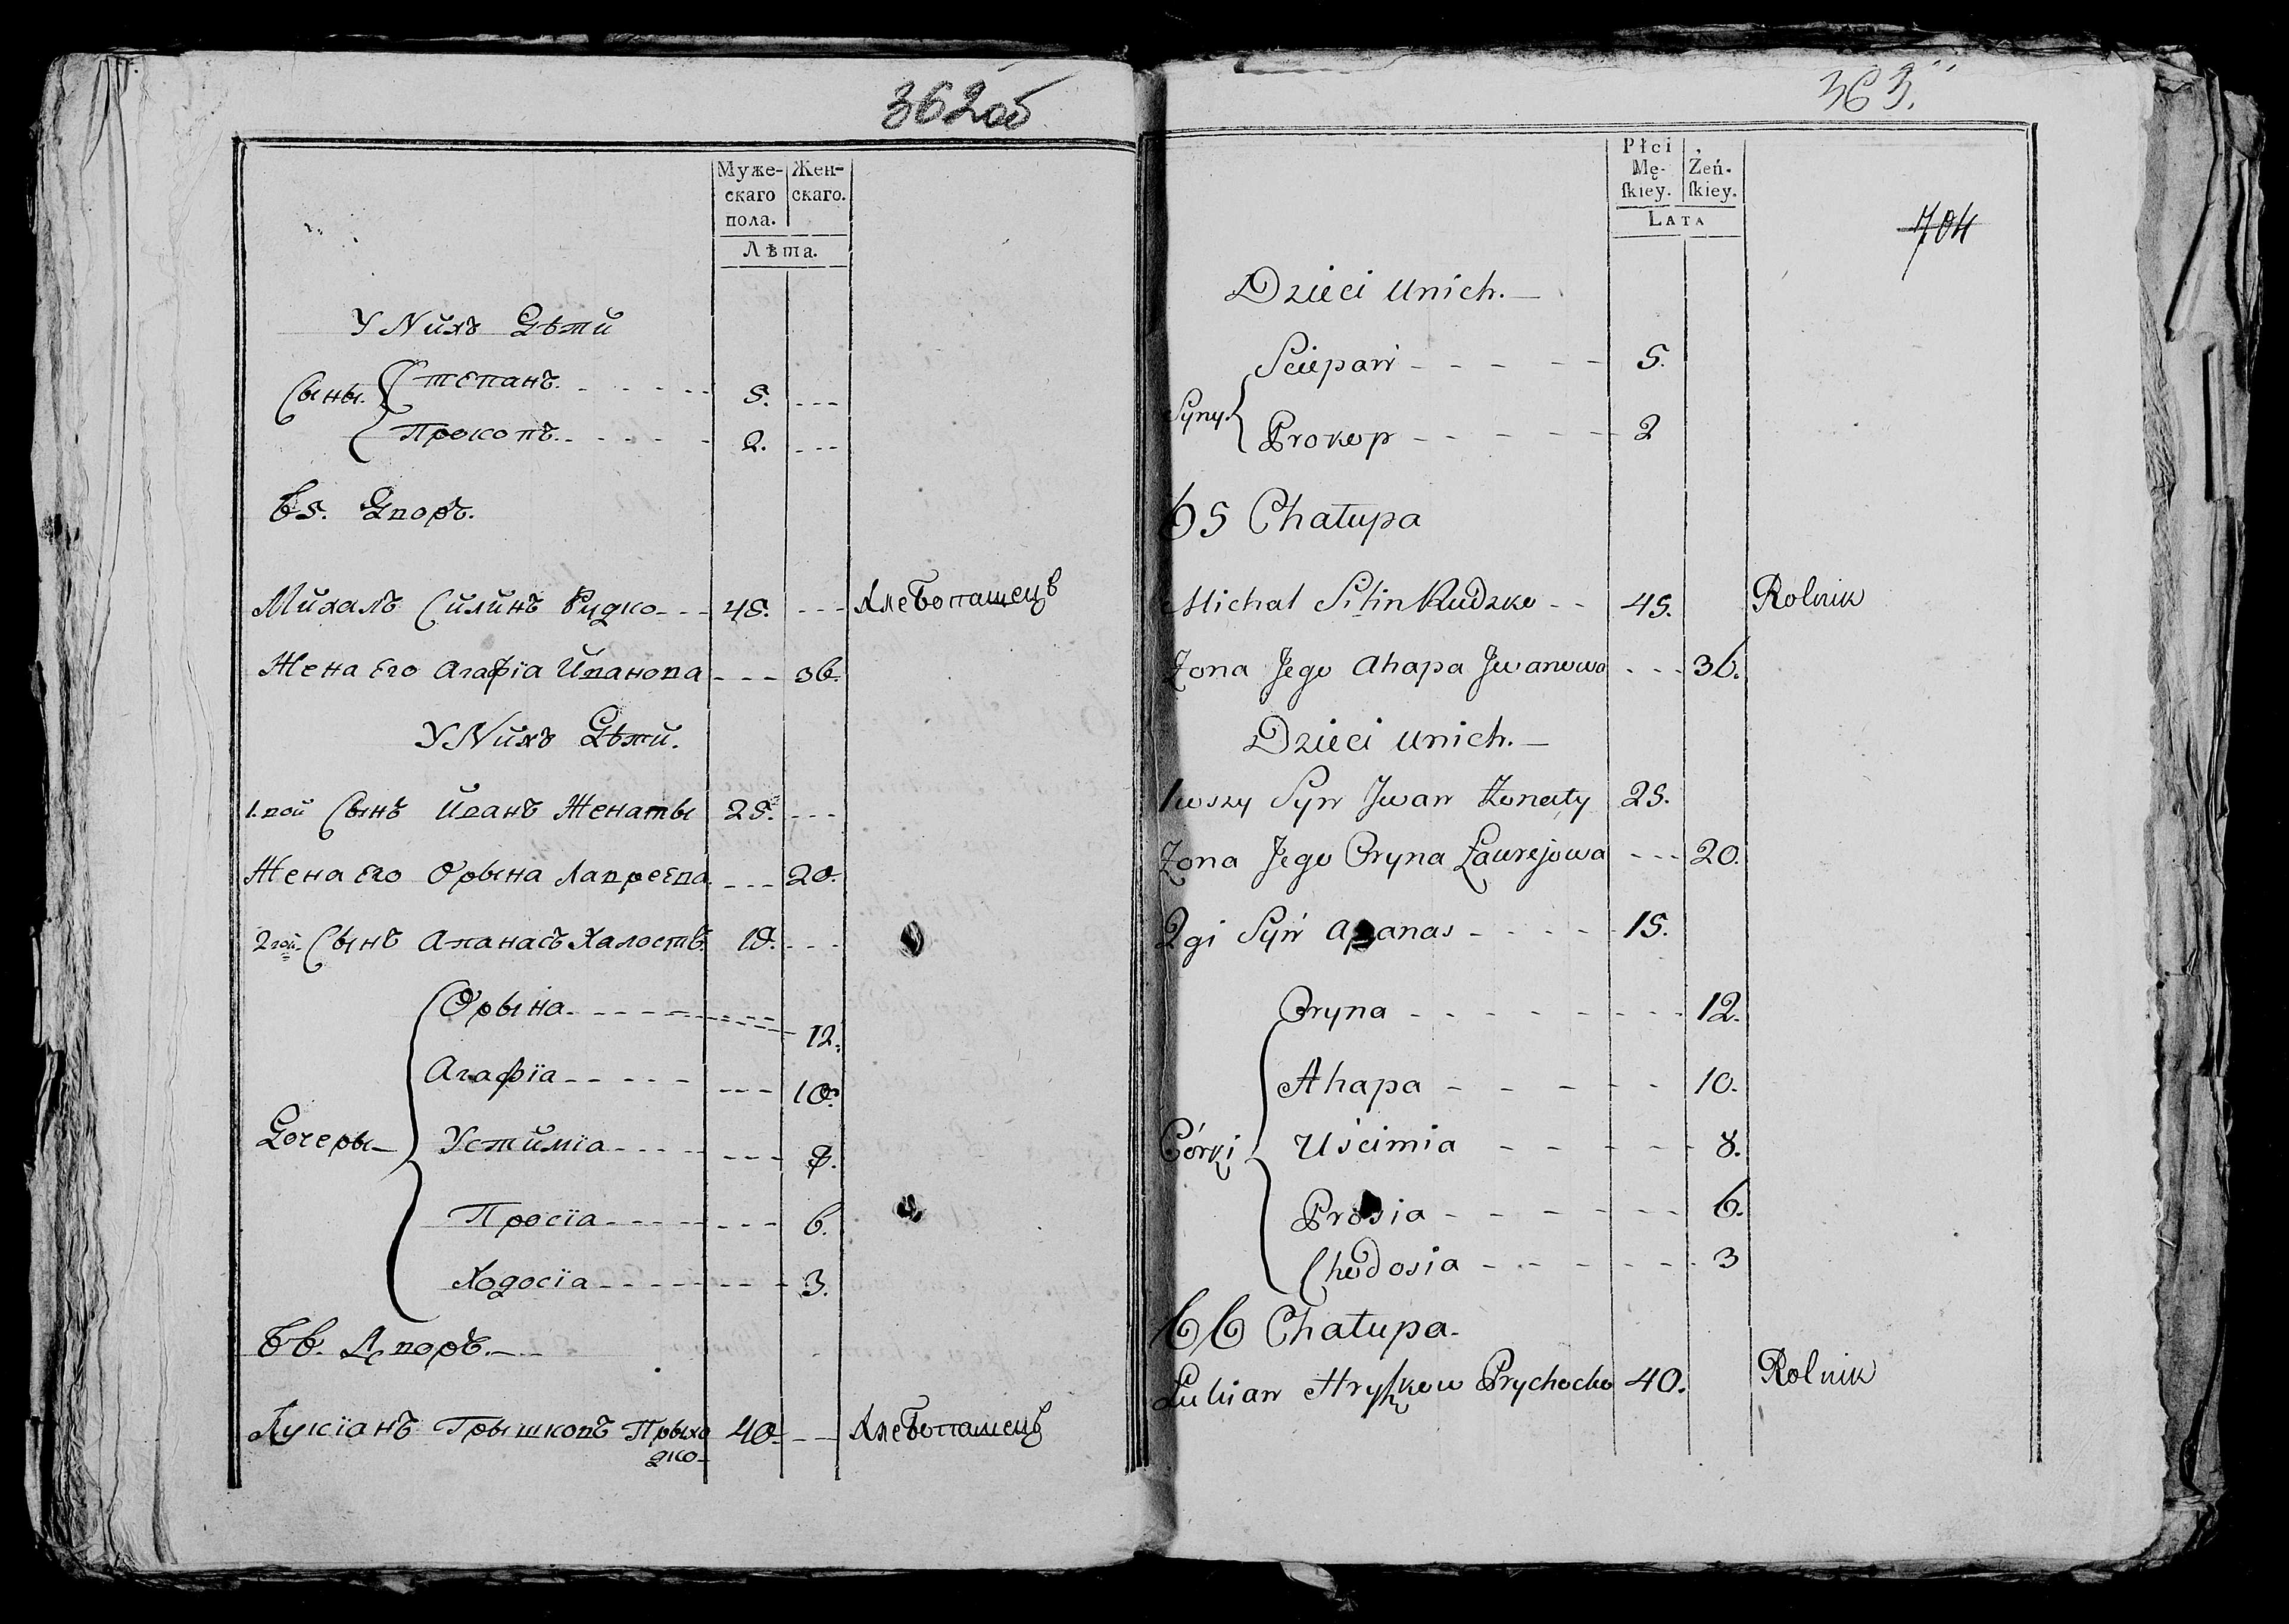 362об
Муже- Жен-
скаго скаго.
пола.
Лѣта.
У Nихъ Дѣти
Сыны. Степанъ. 5.
Прокопъ. 2.
65. Дворъ.
Михалъ Силинъ Рудко 45. Хлебопашецъ
Жена Его Агафїа Иванова 36.
У Nихъ Дѣти.
1.вой Сынъ Иванъ Женаты 25.
Жена Его Орына Лавреева 20.
2гой. Сынъ Апанасъ Халостъ 15.
Орына. 12.
Агафїа 10.
Дочеры Устимїа 8.
Просїа 6.
Ходосїа 3.
66. Дворъ.
Лукїанъ Грышковъ Прыхо 40. Хлебопашецъ
дко
363.
704
Płci
Mę- Żeń-
ſkiey. ſkiey.
LATA
Dzieci unich.
Sciepan 5.
Syny.
Prokop 2
65 Chałupa
Michał Silin Rudzko 45. Rolnik
Zona Jego Ahapa Jwanowa 36.
Dzieci unich.
1wszy Syn Jwan Żonaty 25.
Zona Jego Oryna Ławrejowa 20.
2gi Syn Apanas 15.
Oryna 12.
Ahapa 10.
Córki Uścimia 8.
Prosia 6.
Chodosia 3
66 Chałupa.
Łukian Hryſzkow Prychodko 40. Rolnik